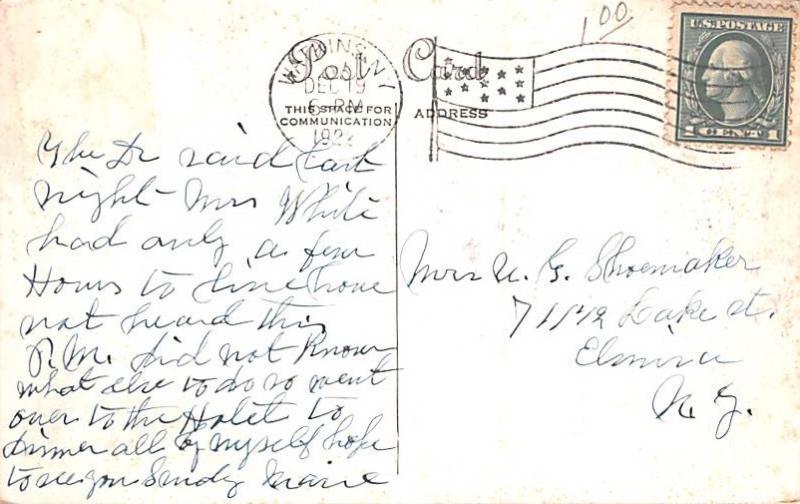 1.00
U.S. POSTAGE
1 CENT 1
WATKINS N.Y.
DEC 19
6 PM
192
Post Card
THIS SPACE FOR
COMMUNICATION
ADDRESS
The Dr said last
night Mrs White
had only a few
Hours to live have
not heard this
P.M. did not know
what else to do so went
over to the Hotel to
dinner all by myself hope
to see you Sunday Marie
Mrs U. G. Shoemaker
711 1/2 Lake St.
Elmira
N. Y.